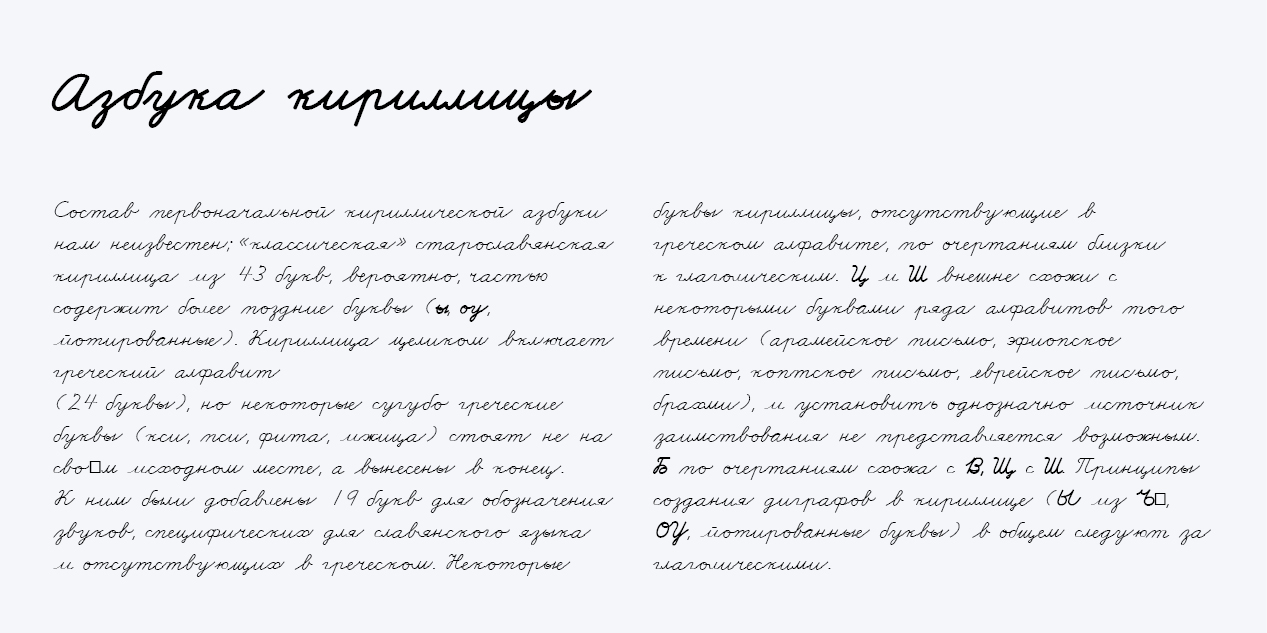 Азбука кириллицы
Состав первоначальной кириллической азбуки
нам неизвестен; «классическая» старославянская
кириллица из 43 букв, вероятно, частью
содержит более поздние буквы (ы, оу,
йотированные). Кириллица целиком включает
греческий алфавит
(24 буквы), но некоторые сугубо греческие
буквы (кси, пси, фита, ижица) стоят не на
сво□м исходном месте, а вынесены в конец.
К ним были добавлены 19 букв для обозначения
звуков, специфических для славянского языка
и отсутствующих в греческом. Некоторые
буквы кириллицы, отсутствующие в
греческом алфавите, по очертаниям близки
к глаголическим. Ц и Ш внешне схожи с
некоторыми буквами ряда алфавитов того
времени (арамейское письмо, эфиопское
письмо, коптское письмо, еврейское письмо,
брахми), и установить однозначно источник
заимствования не представляется возможным.
Б по очертаниям схожа с В, Щ с Ш. Принципы
создания диграфов в кириллице (Ы из Ъ□,
ОУ, йотированные буквы) в общем следуют за
глаголическими.